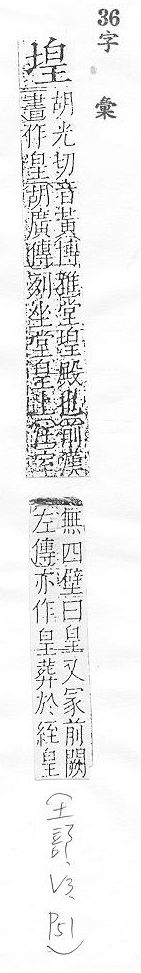 36 字彙
堭
胡光切音黃博雅堂堭殿也前漢
書作皇胡廣傳列坐堂皇上注室
無四壁曰皇又冢前闕
左傳亦作皇葬於絰皇
(土部、V3、P51)